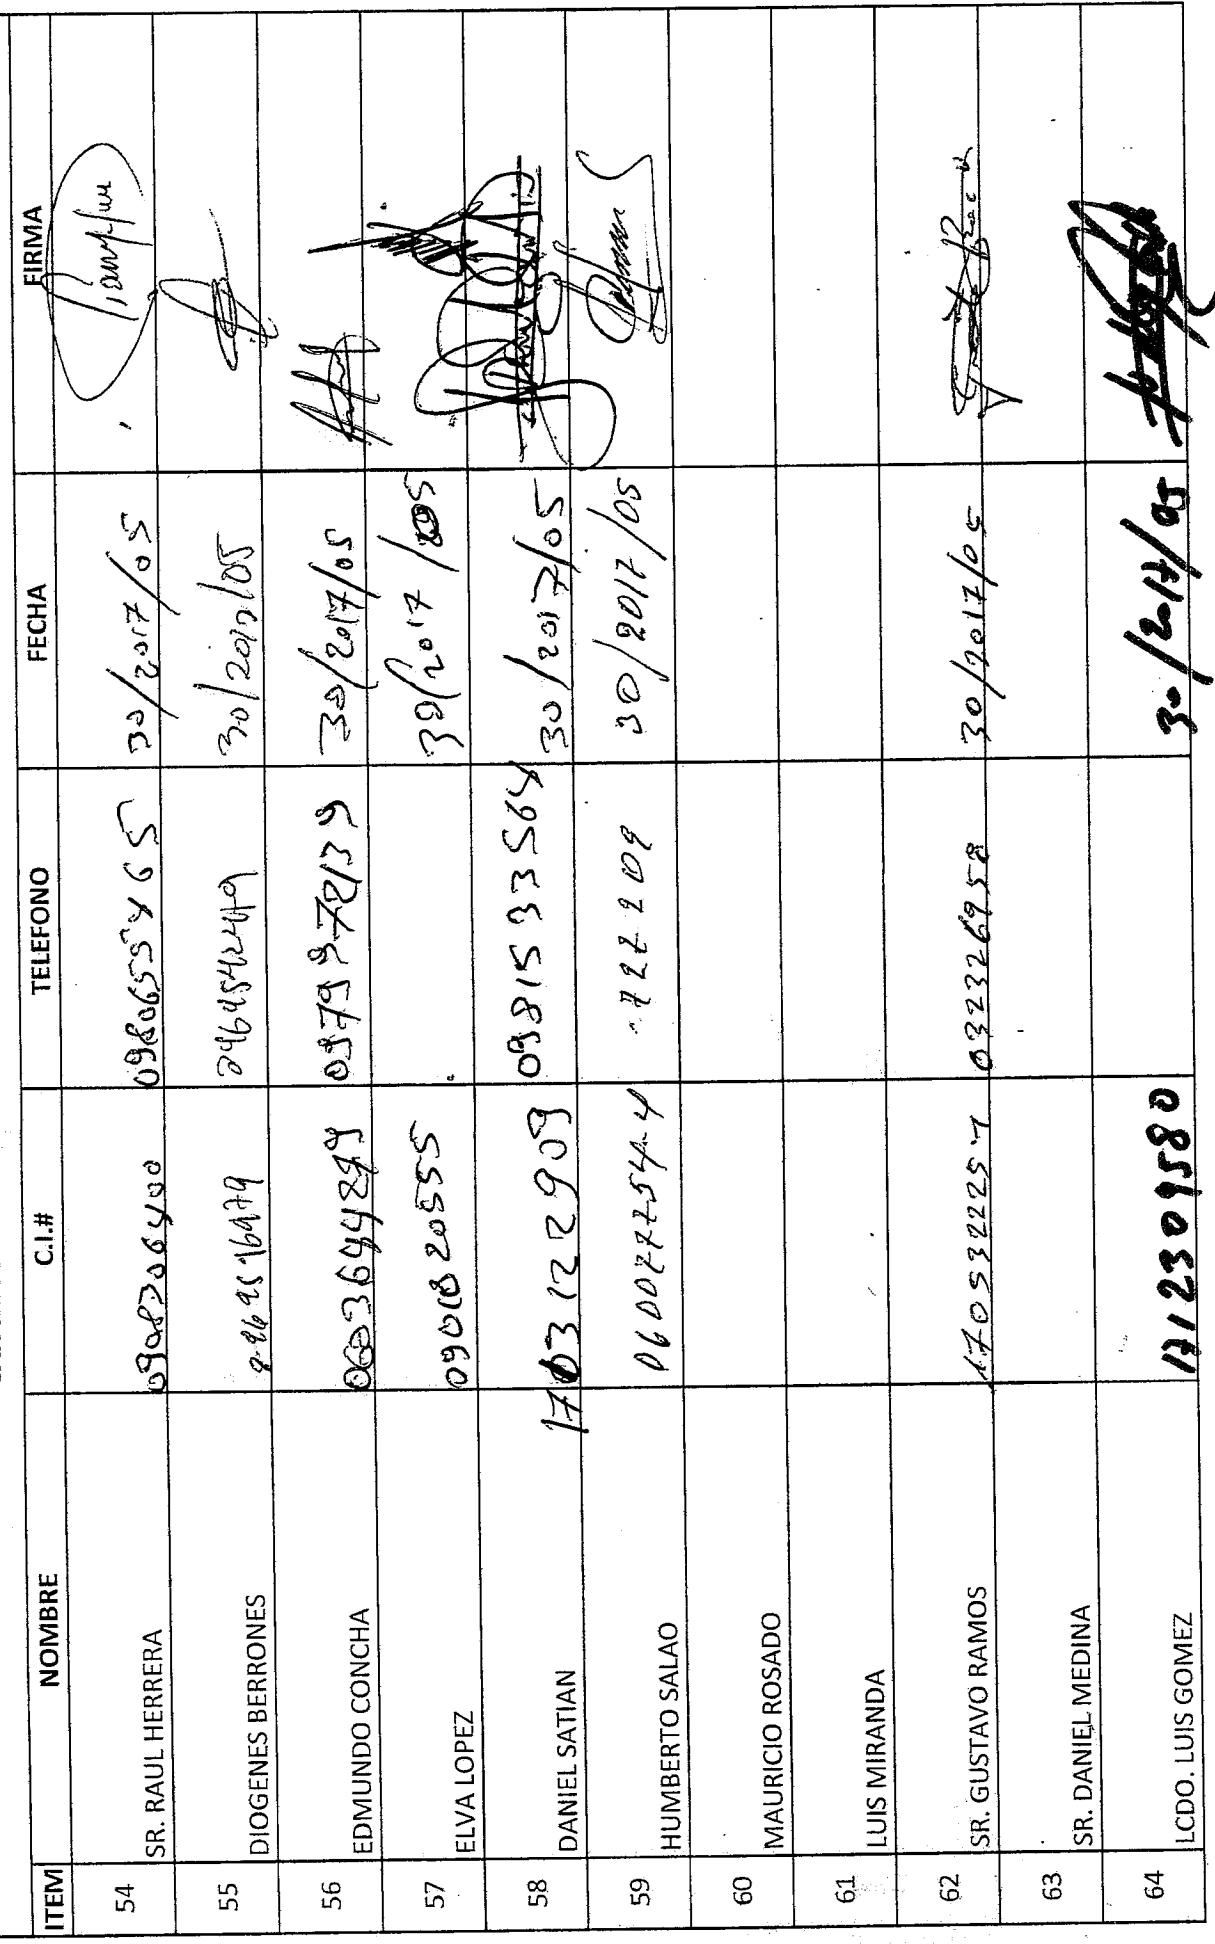 ITEM NOMBRE C.I.# TELEFONO FECHA FIRMA
54 SR. RAUL HERRERA 0908706400 0980655465 30/2017/05
55 DIOGENES BERRONES 30/2017/05
56 EDMUNDO CONCHA 0603644899 0979972139 30/2017/05
57 ELVA LOPEZ 0901820555 30/2017/05
58 DANIEL SATIAN 1703122909 0981533564 30/2017/05
59 HUMBERTO SALAO 0600777544 722209 30/2017/05
60 MAURICIO ROSADO
61 LUIS MIRANDA
62 SR. GUSTAVO RAMOS 1705322257 032326958 30/2017/05
63 SR. DANIEL MEDINA
64 LCDO. LUIS GOMEZ 1712309580 30/2017/05